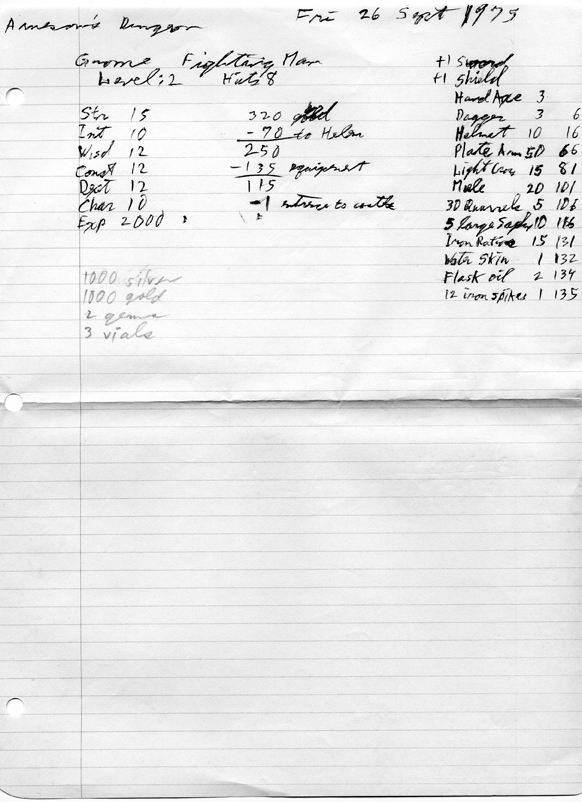 Arneson's Dungeon
Fri 26 Sept 1975
Gnome Fighting Man
Level: 2 Hits 8
Str 15
Int 10
Wisd 12
Const 12
Dext 12
Char 10
Exp 2000
320 gold
- 70 to Helm
250
- 135 equipment
115
-1 entrance to castle
1000 silver
1000 gold
2 gems
3 vials
+1 Sword
+1 Shield
Hand Axe 3
Dagger 3 6
Helmet 10 16
Plate Arm 50 66
Light Cross 15 81
Mule 20 101
30 Quarrels 5 106
5 large Sacks 10 116
Iron Rations 15 131
Water Skin 1 132
Flask oil 2 134
12 iron spikes 1 135